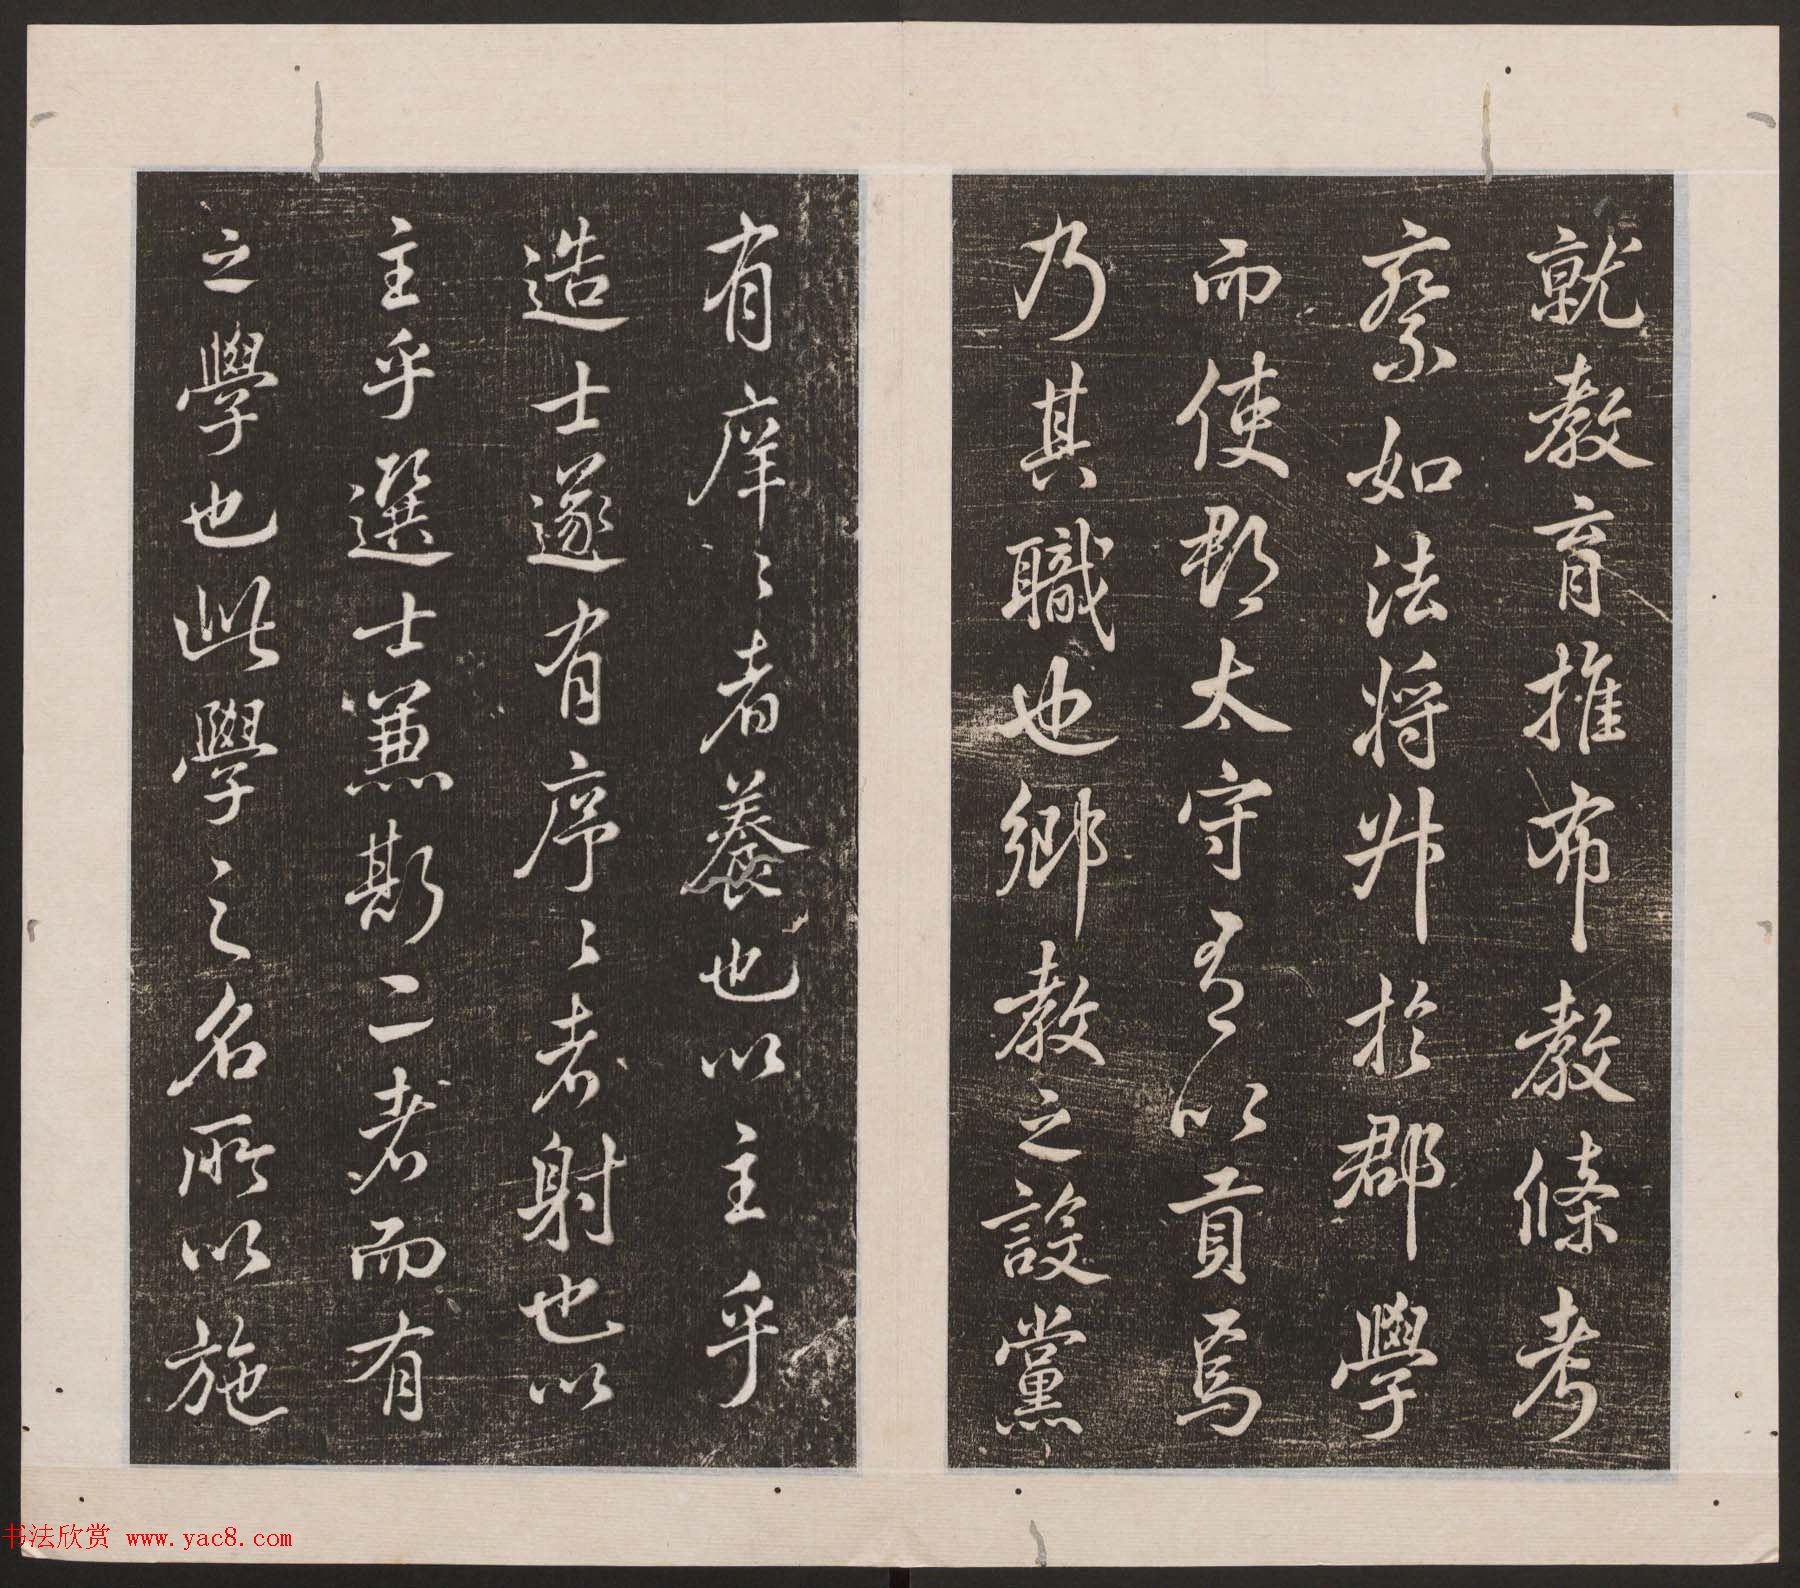 就教育推布教條考
察如法将升於郡學
而使郡太守考以貢焉
乃其職也鄉教之設黨
有庠〻者養也以主乎
造士遂有序〻者射也以
主乎選士兼斯二者而有
之學也此學之名所以施
书法欣赏 www.yac8.com